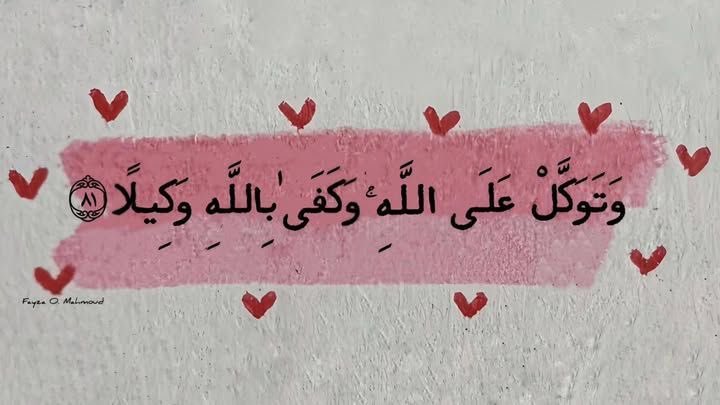 وَتَوَكَّلْ عَلَى اللَّهِ ۚ وَكَفَىٰ بِاللَّهِ وَكِيلًا ۝٨١
Fayza O. Mahmoud